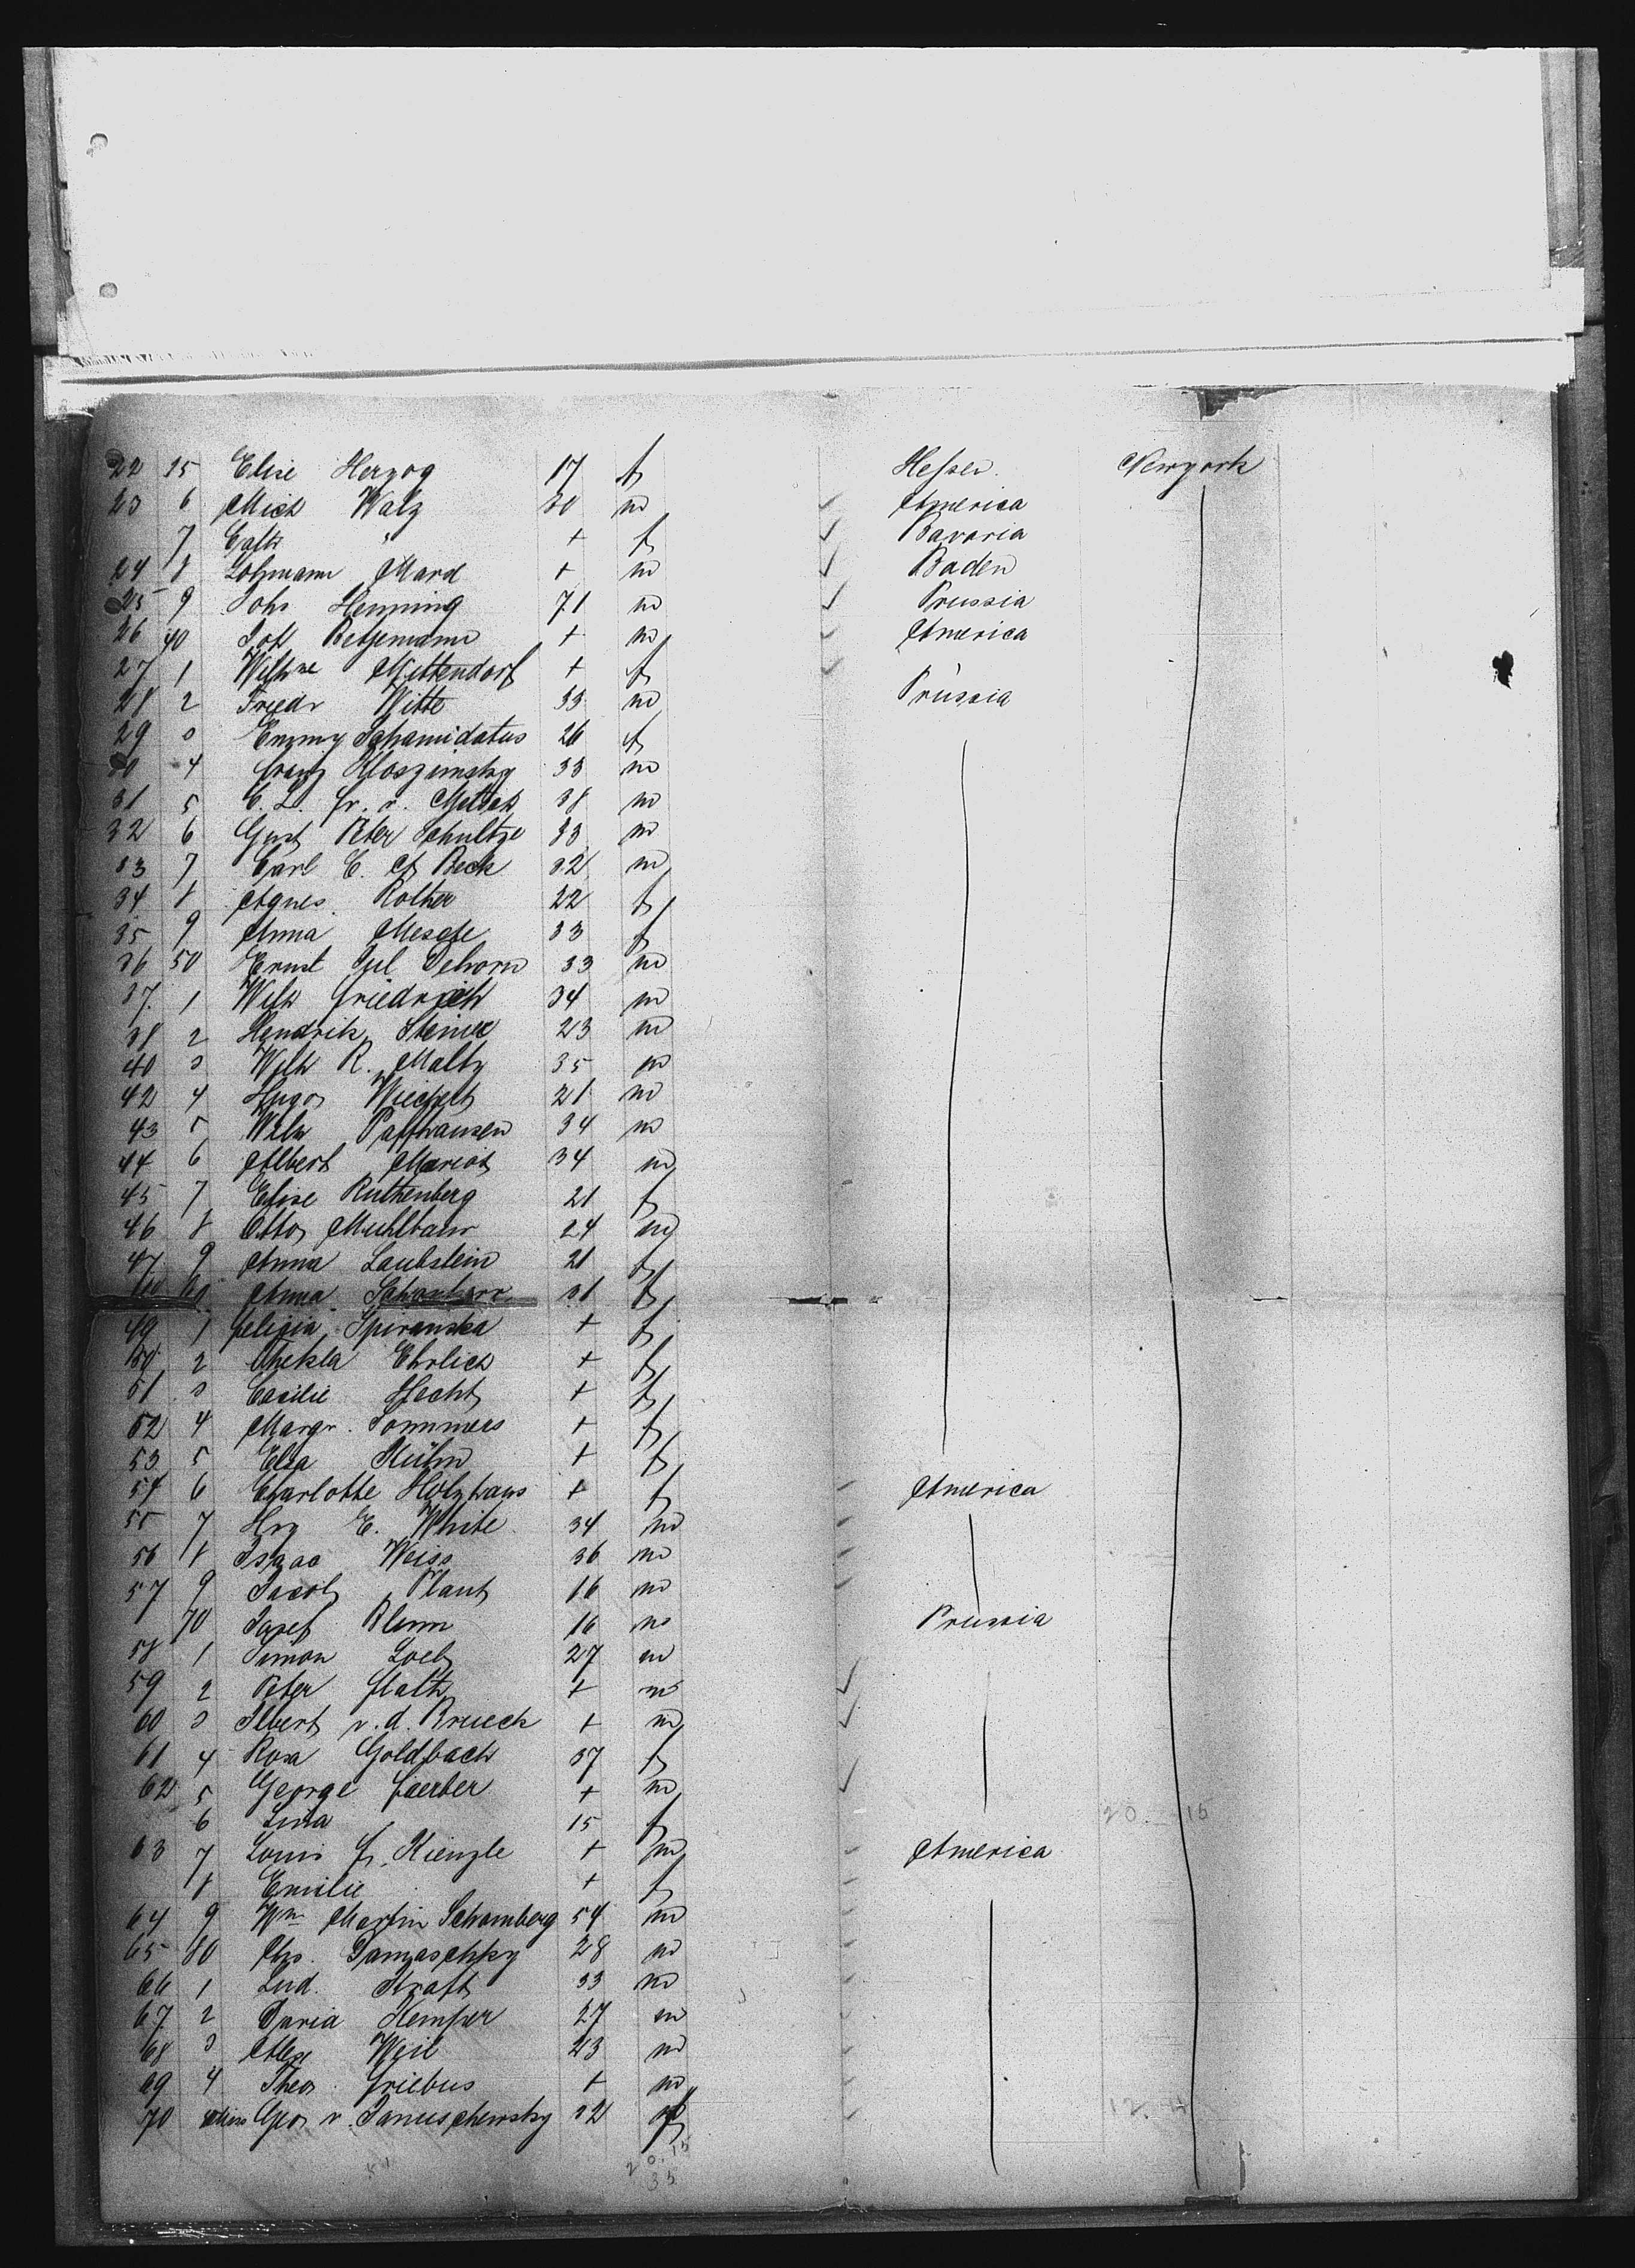 22 35 Elise Herzog 17 f Hessen Newyork
23 6 Mich Walz 30 m America
7 Cath " + f Bavaria
24 8 Mard + m Baden
25 9 Johs Henning 71 m Prussia
26 40 Joh Betjemann + m America
27 1 Wilhne Mittendorf + f
28 2 Friedr Witte 33 m Prussia
29 3 Emmy Schamidatus 26 f
30 4 Franz 33 m
31 5 C. L. Fr. v. 38 m
32 6 Gust Peter Schultze 33 m
33 7 Carl C. A Beck 32 m
34 8 Agnes Rother 22 f
35 9 Anna 33 f
36 50 Ernst Jul Dehorn 33 m
37. 1 Wilh Friedrich 34 m
38 2 Hendrik Steiner 23 m
40 3 Wilh R. Maltz 35 m
42 4 Hugo Wiechelt 21 m
43 5 Wilh Paffhausen 34 m
44 6 Albert Mariot 34 m
45 7 Elise Ruthenberg 21 f
46 8 Otto Muhlbaur 24 m
47 9 Anna Laubstein 21 f
60 Anna 31 f
49 1 Felicia Spiranska + f
50 2 Thekla Ehrlich + f
51 3 Cacilie Hecht + f
52 4 Margr. Sommers + f
53 5 Elsa Kühn + f
54 6 Charlotte Holzhaus + f America
55 7 Hry E. White 34 m
56 8 Isaac Weiss 36 m
57 9 Jacob Plaut 16 m
70 Josef Blum 16 m Prussia
58 1 Simon Loeb 27 m
59 2 Peter Flath + m
60 3 Ilbert v. d. Brueck + m
61 4 Rosa Goldbach 37 f
62 5 George Faerber + m
6 Lina 15 f 20. 15
63 7 Louis F. Kienzle + m America
8 Emilie + f
64 9 Wm Martin Schamberg 54 m
65 80 Chs. 28 m
66 1 Lud. Kraft 33 m
67 2 Kemper 27 m
68 3 Alex Weil 23 m
69 4 Theo. Griebus + m
70 Geo v. Januschewsky 32 f
20. 15
35